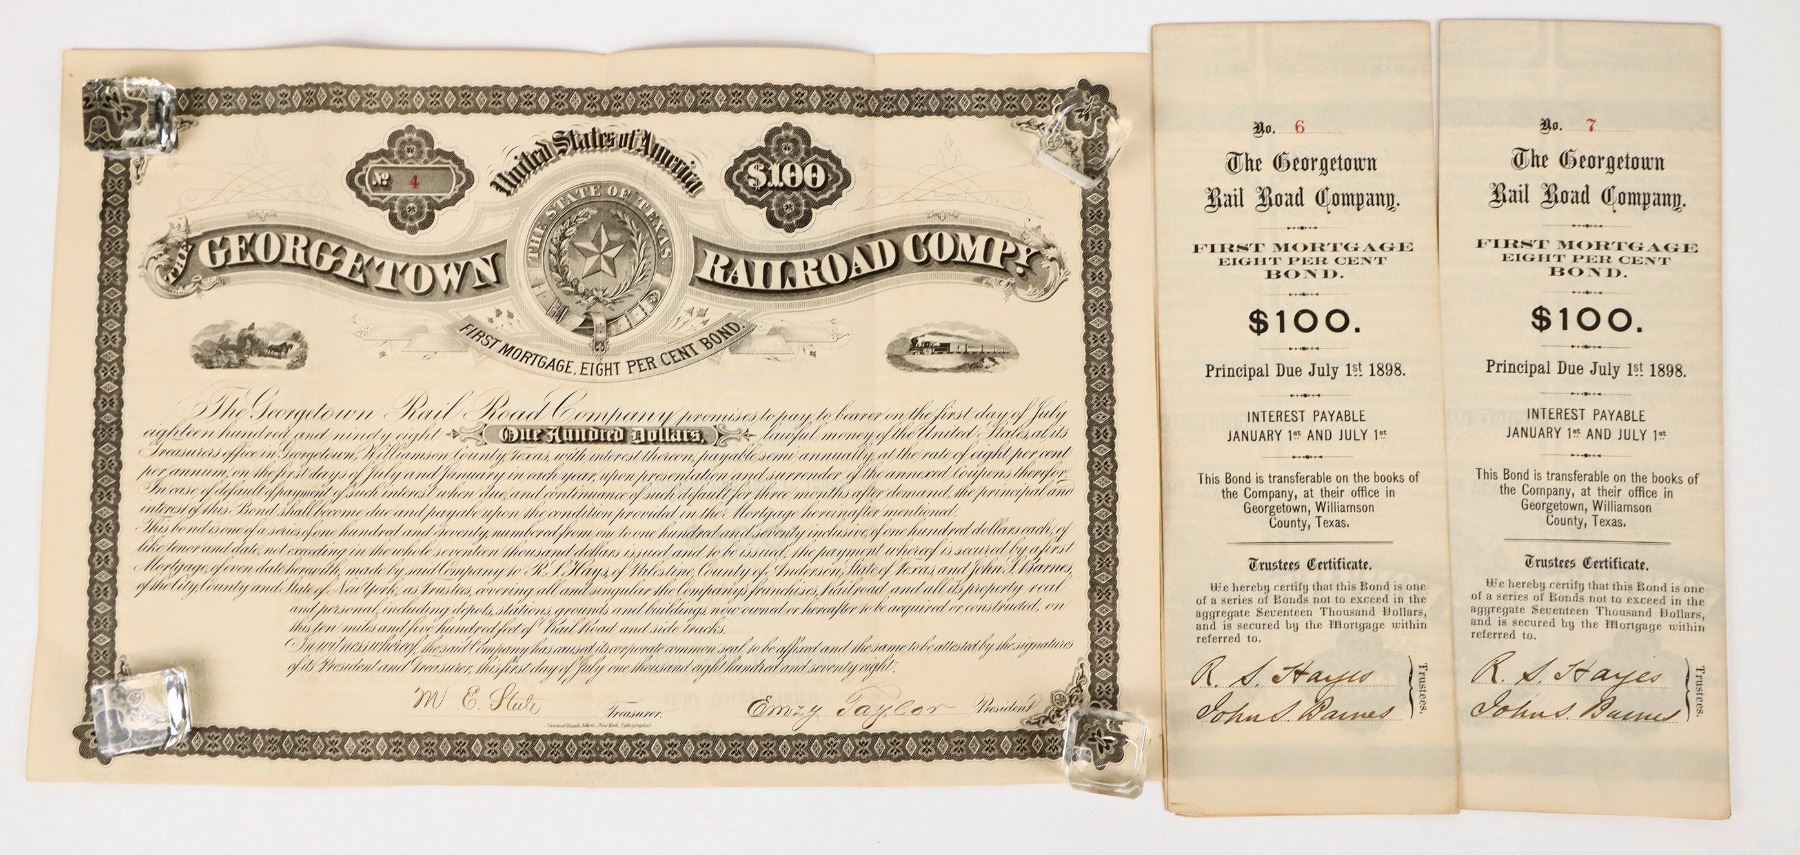 United States of America
No 4
$100
THE STATE OF TEXAS
THE GEORGETOWN RAILROAD COMPY.
FIRST MORTGAGE, EIGHT PER CENT BOND.
The Georgetown Rail Road Company promises to pay to bearer on the first day of July
eighteen hundred and ninety eight One Hundred Dollars, lawful money of the United States, at its
Treasurers office in Georgetown, Williamson County, Texas, with interest thereon, payable semi annually, at the rate of eight per cent
per annum, on the first days of July and January in each year, upon presentation and surrender of the annexed Coupons therefor.
In case of default of payment of such interest when due, and continuance of such default for three months after demand, the principal and
interest of this Bond shall become due and payable upon the condition provided in the Mortgage hereinafter mentioned.
This bond is one of a series of one hundred and seventy, numbered from one to one hundred and seventy inclusive, of one hundred dollars each, of
like tenor and date, not exceeding in the whole seventeen thousand dollars issued and to be issued, the payment whereof is secured by a first
Mortgage, of even date herewith, made by said Company to R. S. Hays, of Palestine, County of Anderson, State of Texas, and John S. Barnes,
of the City, County and State of New York, as Trustees, covering all and singular the Company's franchises, Railroad, and all its property real
and personal, including depots, stations, grounds and buildings, now owned or hereafter to be acquired or constructed, on
this ten miles and five hundred feet of Rail Road and side tracks.
In witness whereof, the said Company has caused its corporate common seal to be affixed and the same to be attested by the signatures
of its President and Treasurer, this first day of July one thousand eight hundred and seventy eight.
M E. Steele Treasurer. Emzy Taylor President
No. 6
The Georgetown
Rail Road Company.
FIRST MORTGAGE
EIGHT PER CENT
BOND.
$100.
Principal Due July 1st 1898.
INTEREST PAYABLE
JANUARY 1st AND JULY 1st
This Bond is transferable on the books of
the Company, at their office in
Georgetown, Williamson
County, Texas.
Trustees Certificate.
We hereby certify that this Bond is one
of a series of Bonds not to exceed in the
aggregate Seventeen Thousand Dollars,
and is secured by the Mortgage within
referred to.
R. S. Hayes
John S. Barnes
Trustees.
No. 7
The Georgetown
Rail Road Company.
FIRST MORTGAGE
EIGHT PER CENT
BOND.
$100.
Principal Due July 1st 1898.
INTEREST PAYABLE
JANUARY 1st AND JULY 1st
This Bond is transferable on the books of
the Company, at their office in
Georgetown, Williamson
County, Texas.
Trustees Certificate.
We hereby certify that this Bond is one
of a series of Bonds not to exceed in the
aggregate Seventeen Thousand Dollars,
and is secured by the Mortgage within
referred to.
R. S. Hayes
John S. Barnes
Trustees.